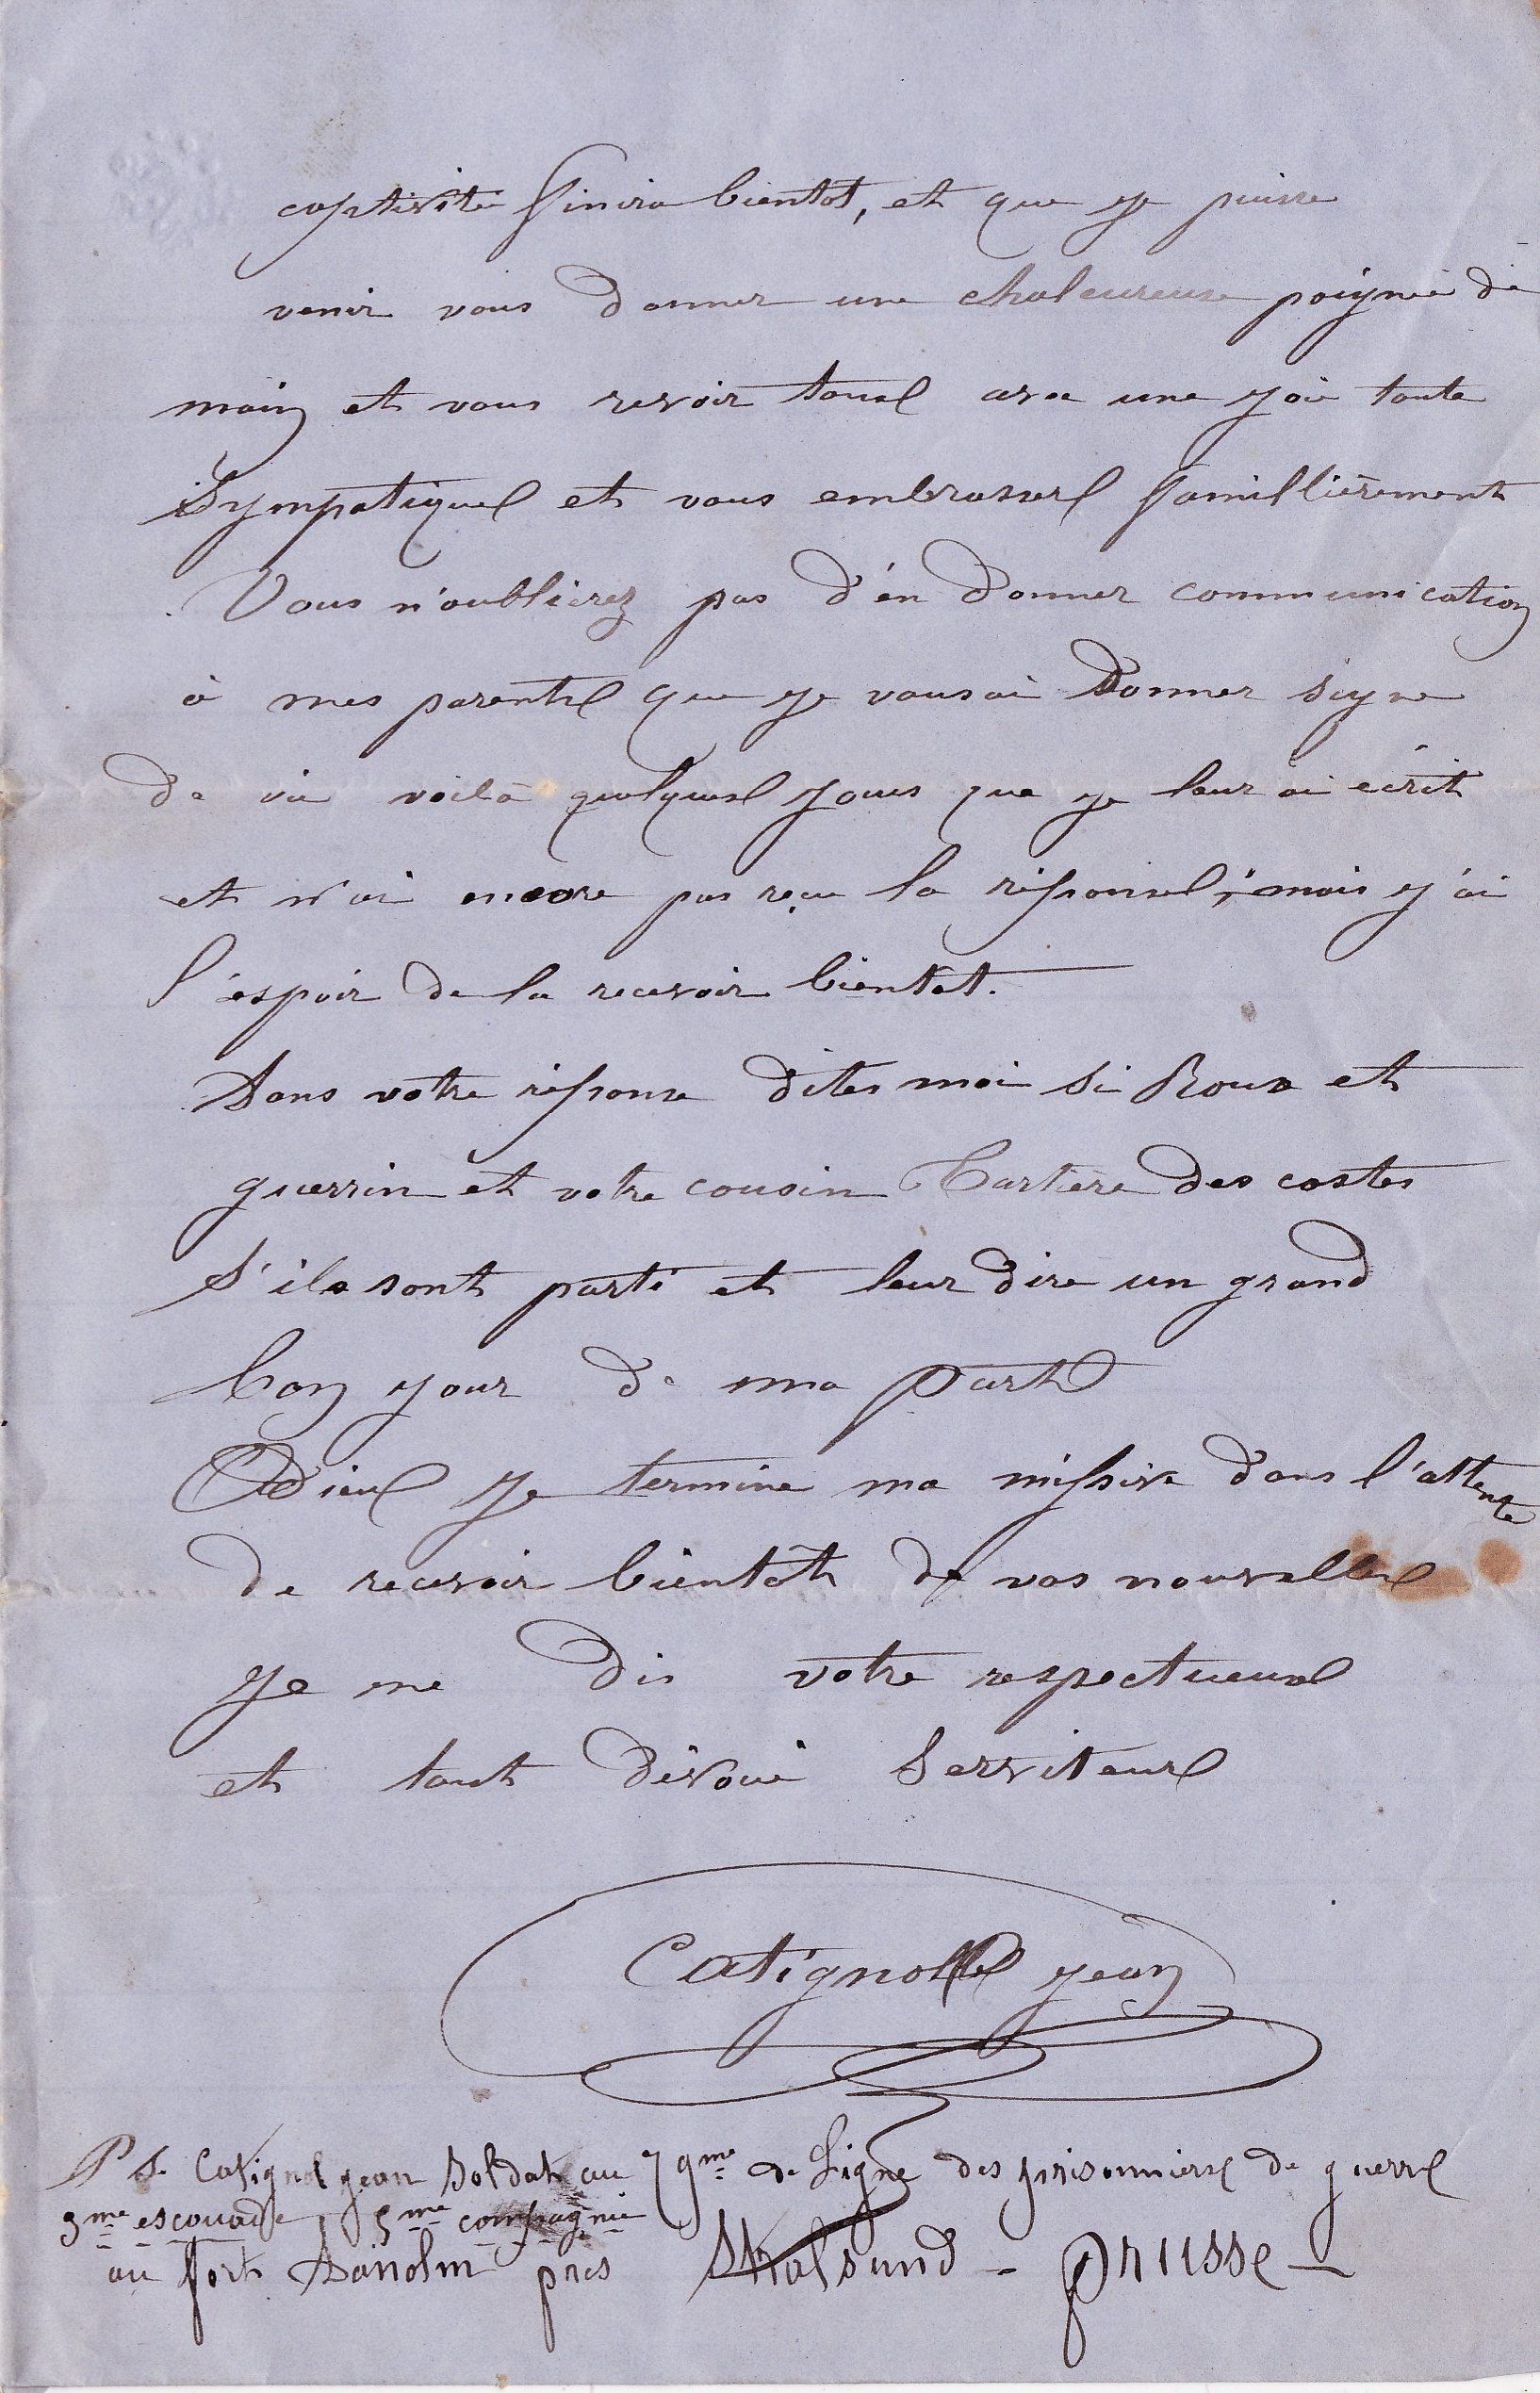 captivité finira bientot, et que je puisse
venir vous donner une chaleureuse poignée de
main et vous revoir tous avec une joie toute
Sympatique et vous embrasser famillièrement
Vous n'oublierez pas d'én donner communication
à mes parents que je vous ai donner signe
de vie voilà quelques jours que je leur ai écrit
et n'ai encore pas reçu la réponse, mais j'ai
l'éspoir de la recevoir bientot.
Dans votre réponse dites moi si Roux et
guerrin et votre cousin Tartière des costes
S'ils sont parti et leur dire un grand
bon jour de ma part
Adieu je termine ma missive dans l'attente
de recevoir bientôt de vos nouvelles
Je me dis votre respectueux
et tout dévoué Serviteur
Catignolle jean
P S. Catignol jean Soldat au 79me de Ligne des prisonniers de guerre
3me escouade 5me compagnie
au fort Dainolm près Stralsund - prusse -